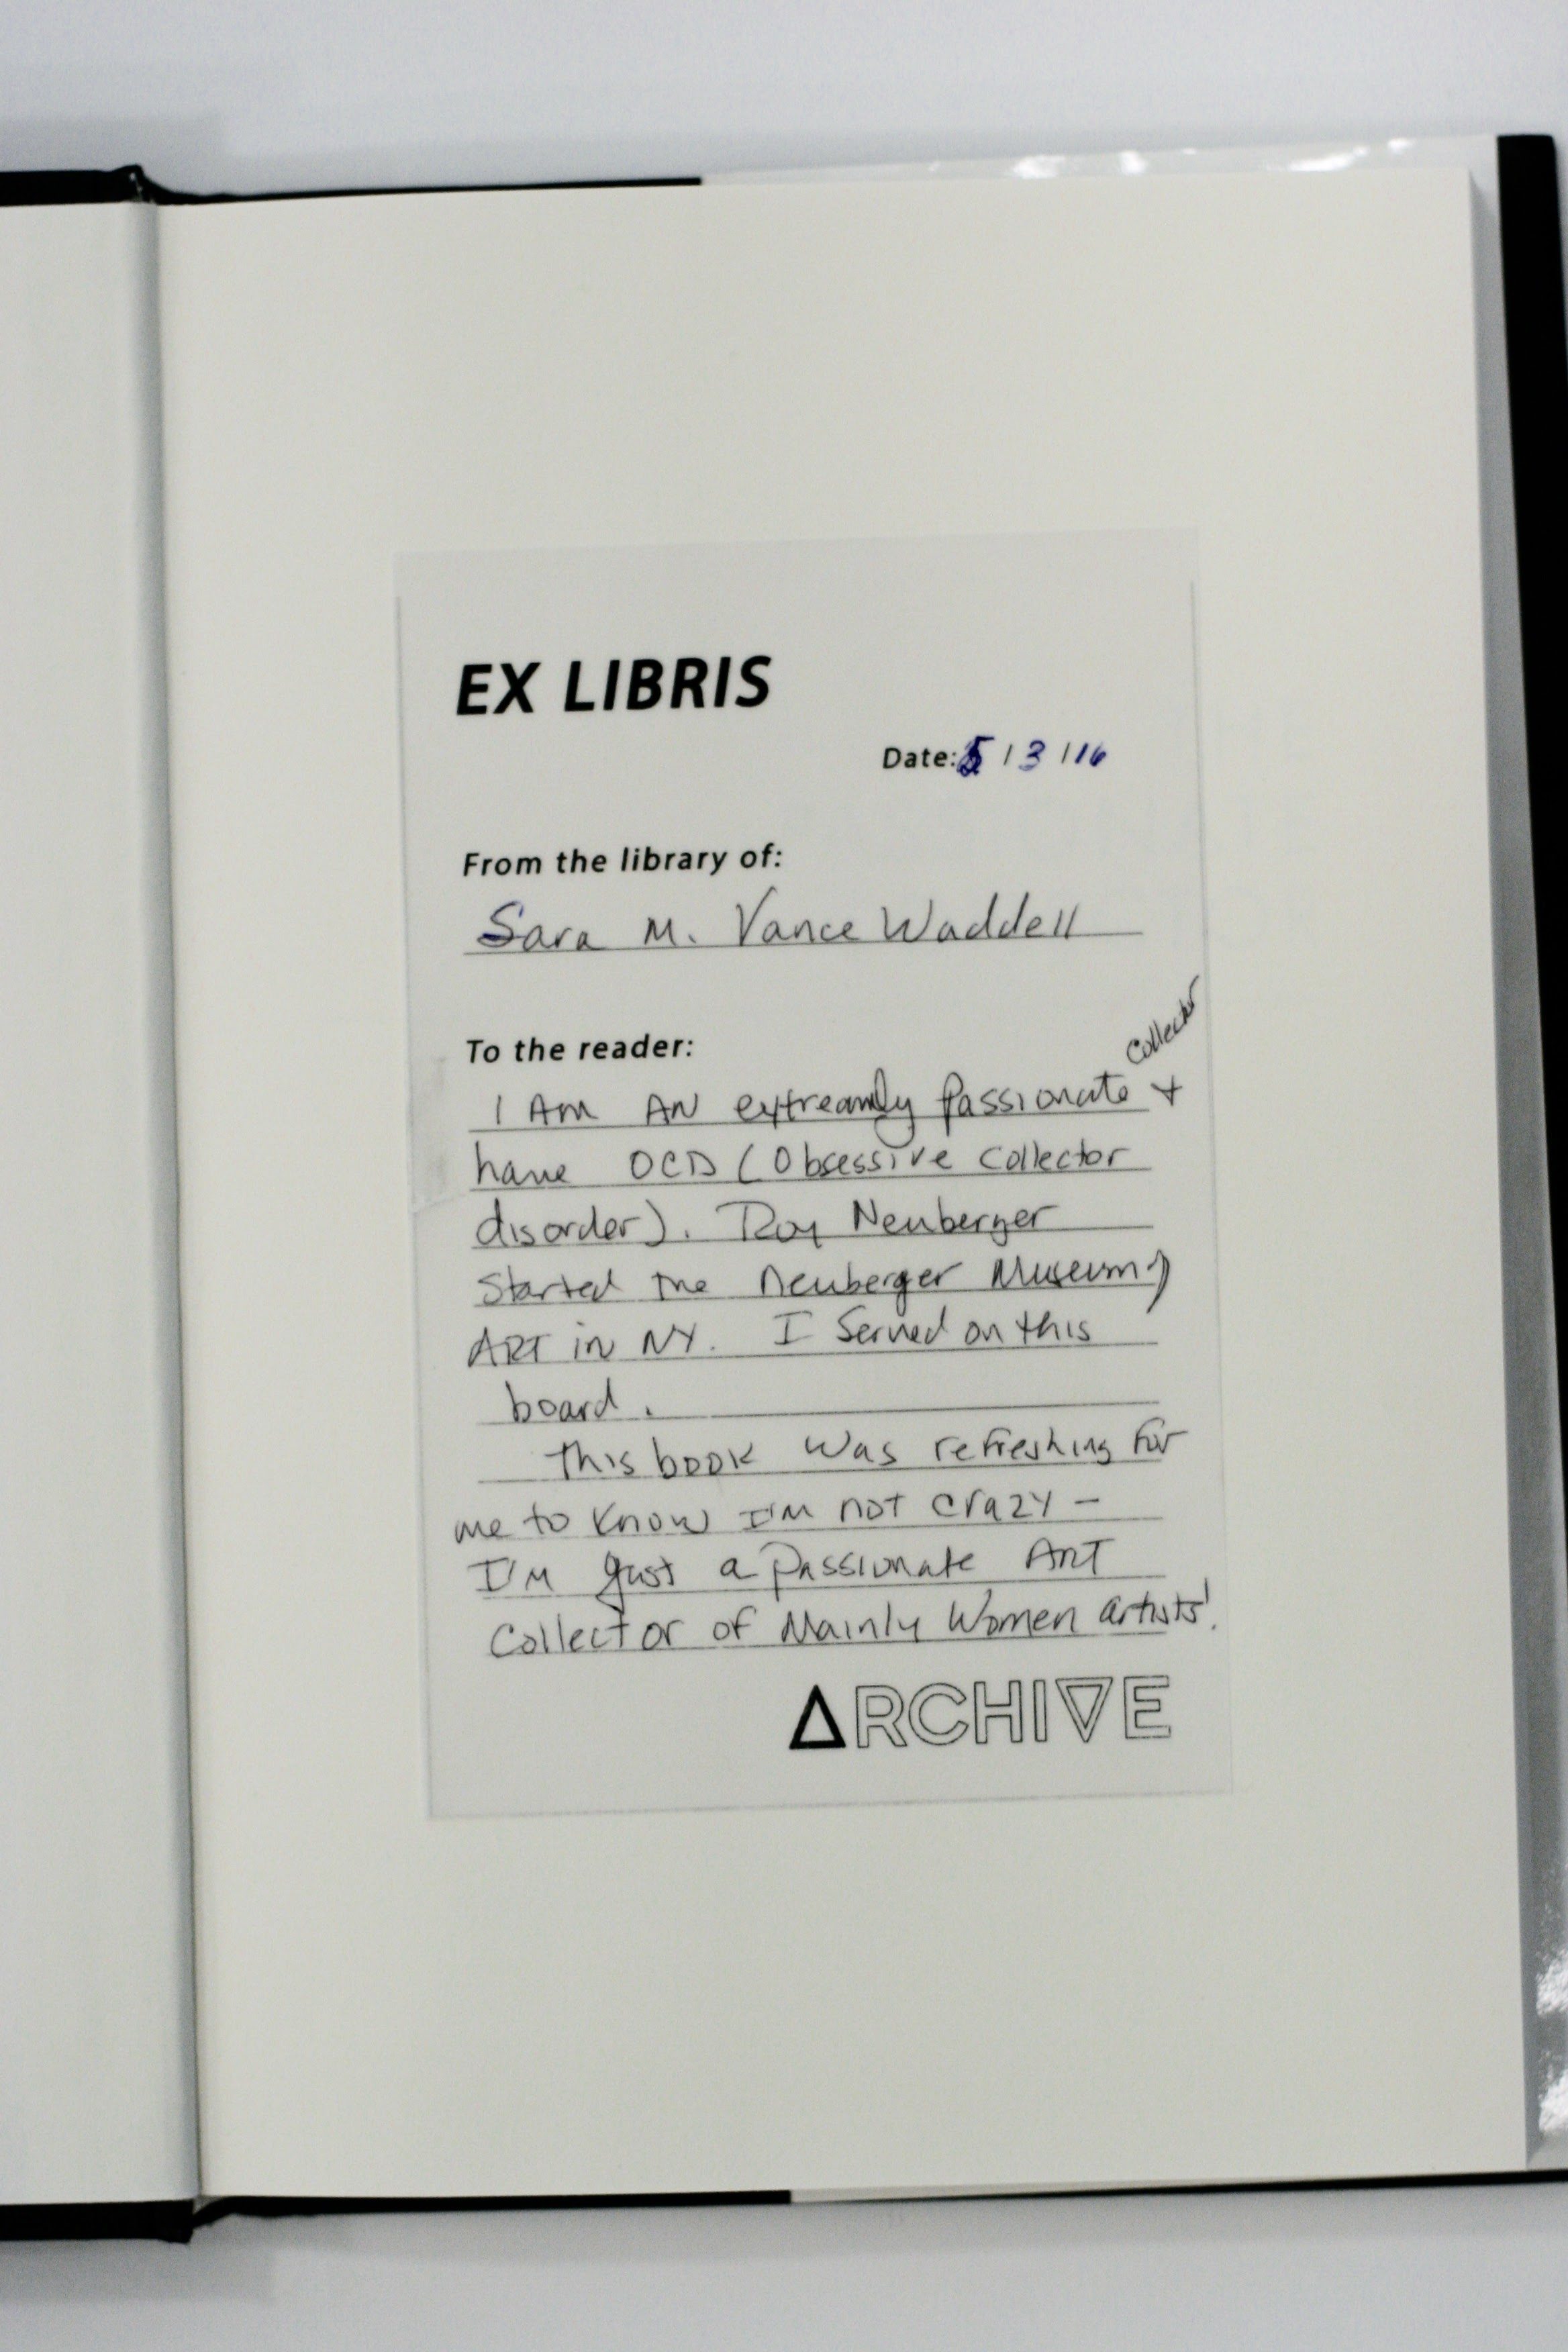 EX LIBRIS
Date: 5/3/16
From the library of:
Sara M. Vance Waddell
To the reader:
Collector
I AM AN extreamly passionate +
have OCD (Obsessive Collector
disorder). Roy Neuberger
Started the Neuberger Museum of
ART in NY. I Served on this
board.
This book was refreshing for
me to know I'm not crazy -
I'm just a passionate ART
Collector of Mainly Women artists!
ARCHIVE